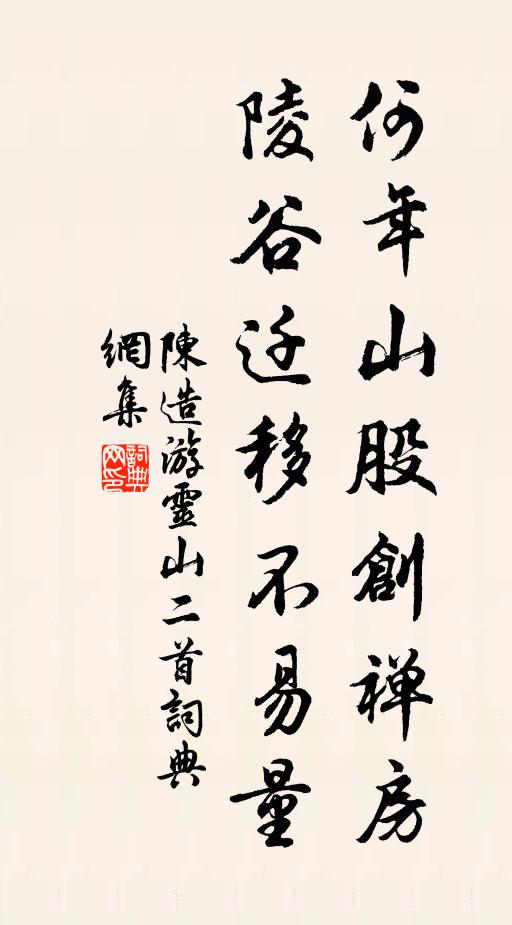 何年山股創禅房
陵谷迁移不易量
陳造游靈山二首詞典
網集
詞典
网印